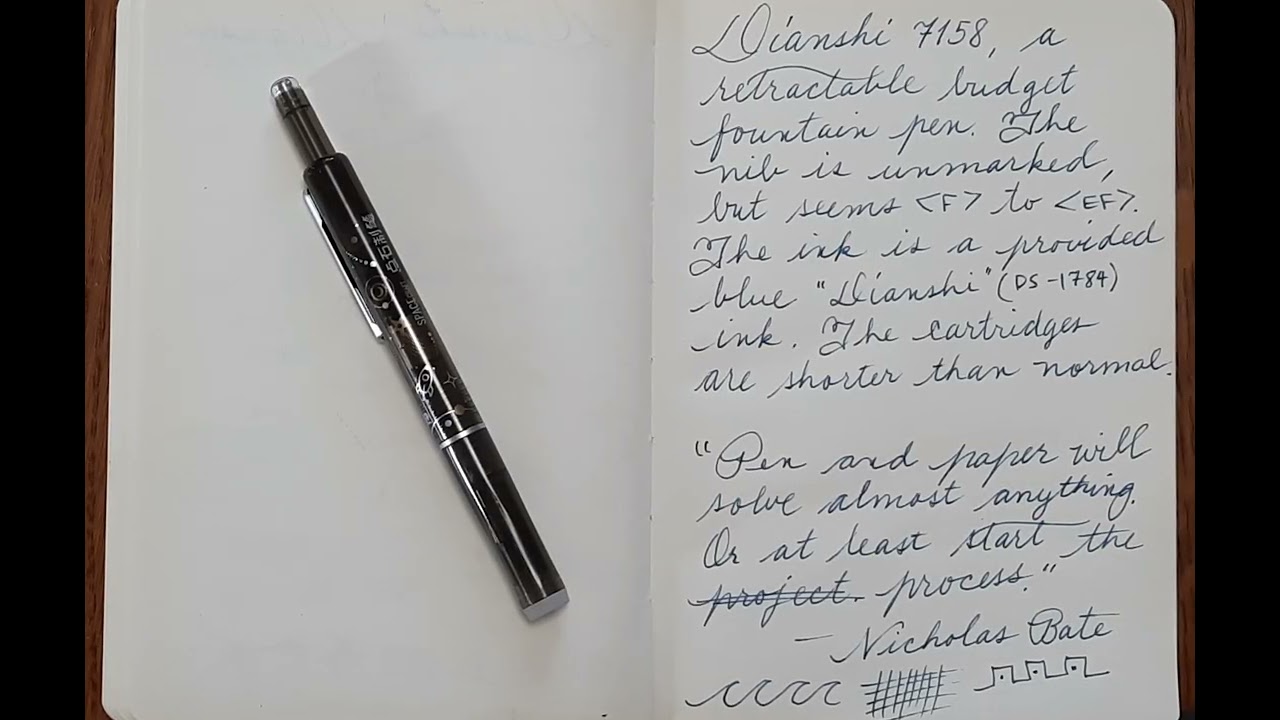 Dianshi 7158, a
retractable budget
fountain pen. The
nib is unmarked,
but seems <F> to <EF>.
The ink is a provided
blue "Dianshi" (DS-1784)
ink. The cartridges
are shorter than normal.
"Pen and paper will
solve almost anything.
Or at least start the
project. process."
— Nicholas Bate
点石
SPACE